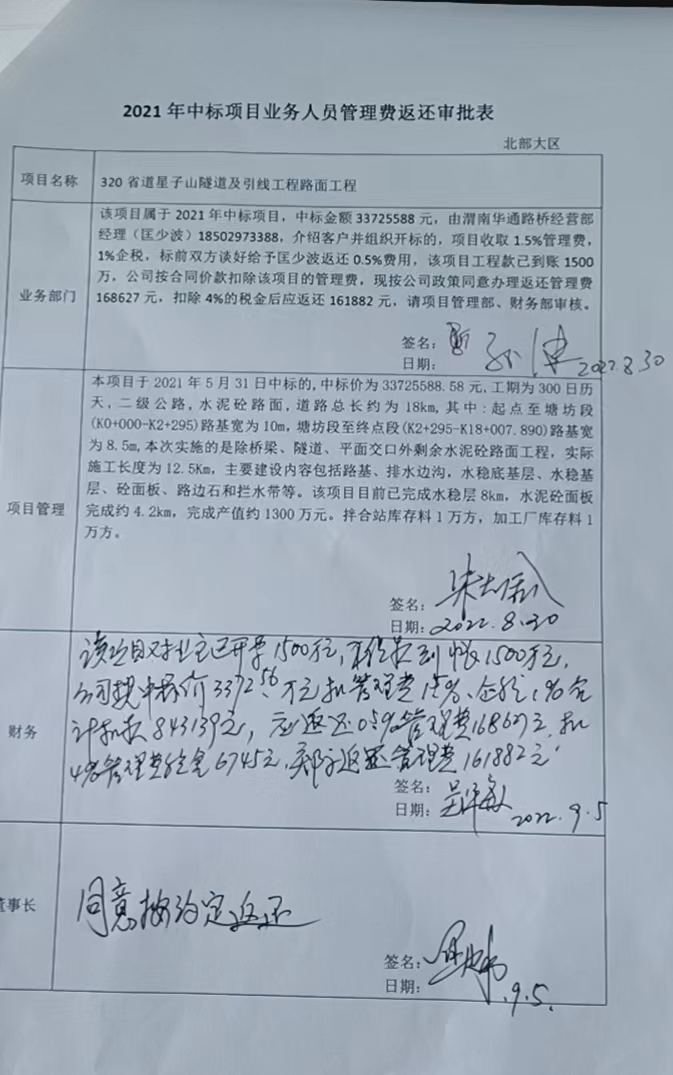 2021年中标项目业务人员管理费返还审批表
北部大区
项目名称
320省道星子山隧道及引线工程路面工程
业务部门
该项目属于2021年中标项目，中标金额33725588元，由渭南华通路桥经营部
经理（匡少波）18502973388，介绍客户并组织开标的，项目收取1.5%管理费，
1%企税，标前双方谈好给予匡少波返还0.5%费用，该项目工程款已到账1500
万，公司按合同价款扣除该项目的管理费，现按公司政策同意办理返还管理费
168627元，扣除4%的税金后应返还161882元，请项目管理部、财务部审核。
签名：
日期： 2022.8.30
项目管理
本项目于2021年5月31日中标的，中标价为33725588.58元，工期为300日历
天，二级公路，水泥砼路面，道路总长约为18km，其中：起点至塘坊段
(K0+000-K2+295)路基宽为10m，塘坊段至终点段(K2+295-K18+007.890)路基宽
为8.5m，本次实施的是除桥梁、隧道、平面交口外剩余水泥砼路面工程，实际
施工长度为12.5Km，主要建设内容包括路基、排水边沟，水稳底基层、水稳基
层、砼面板、路边石和拦水带等。该项目目前已完成水稳层8km，水泥砼面板
完成约4.2km，完成产值约1300万元。拌合站库存料1万方，加工厂库存料1
万方。
签名：
日期：2022.8.30
财务
该项目对业主已开票1500万元，到帐1500万元，
公司按中标价3372.56万元扣管理费1.5%、企税1%合
计扣款843139元，应返还0.5%管理费168627元，扣
4%管理费税金6745元，实际返还管理费161882元
签名：
日期： 2022.9.5
董事长
同意按约定返还
签名：
日期： .9.5.